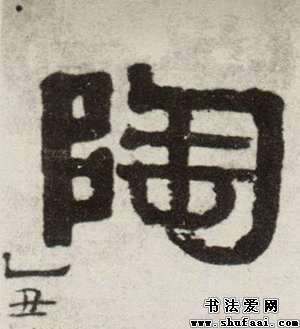 陶
乙
丑
书法爱网
www.shufaai.com